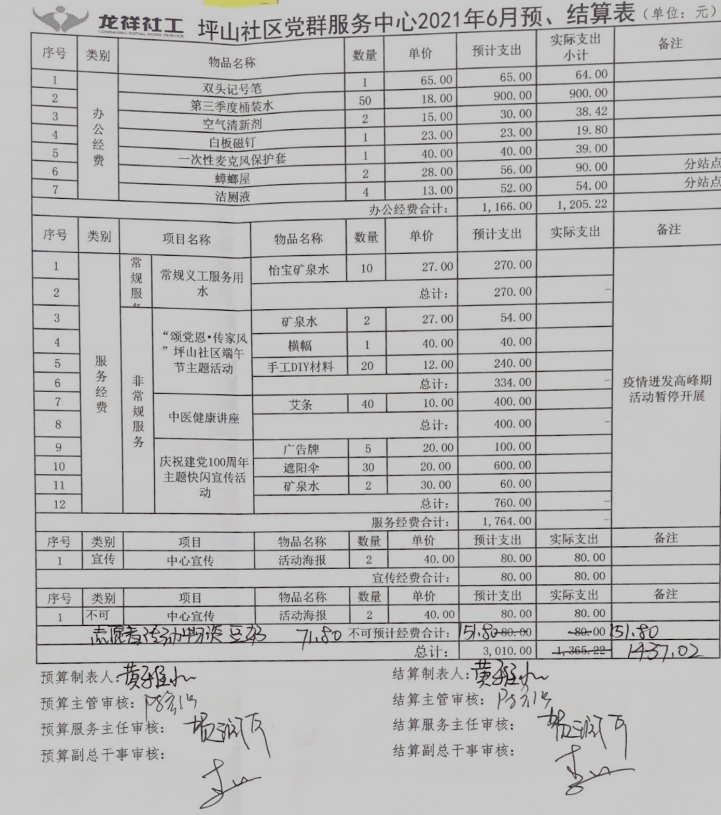 龙祥社工 坪山社区党群服务中心2021年6月预、结算表（单位：元）
序号 类别 物品名称 数量 单价 预计支出 实际支出小计 备注
办公经费
1 双头记号笔 1 65.00 65.00 64.00
2 第三季度桶装水 50 18.00 900.00 900.00
3 空气清新剂 2 15.00 30.00 38.42
4 白板磁钉 1 23.00 23.00 19.80
5 一次性麦克风保护套 1 40.00 40.00 39.00
6 蟑螂屋 2 28.00 56.00 90.00 分站点
7 洁厕液 4 13.00 52.00 54.00 分站点
办公经费合计： 1,166.00 1,205.22
序号 类别 项目名称 物品名称 数量 单价 预计支出 实际支出 备注
服务经费
常规服
1 常规义工服务用水 怡宝矿泉水 10 27.00 270.00
2 总计： 270.00 -
非常规服务
3 “颂党恩•传家风”坪山社区端午节主题活动 矿泉水 2 27.00 54.00
4 横幅 1 40.00 40.00
5 手工DIY材料 20 12.00 240.00
6 总计： 334.00 -
疫情迸发高峰期活动暂停开展
7 中医健康讲座 艾条 40 10.00 400.00
8 总计： 400.00 -
9 庆祝建党100周年主题快闪宣传活动 广告牌 5 20.00 100.00
10 遮阳伞 30 20.00 600.00
11 矿泉水 2 30.00 60.00
12 总计： 760.00 -
服务经费合计： 1,764.00 -
序号 类别 项目 物品名称 数量 单价 预计支出 实际支出 备注
1 宣传 中心宣传 活动海报 2 40.00 80.00 80.00
宣传经费合计： 80.00 80.00
序号 类别 项目 物品名称 数量 单价 预计支出 实际支出 备注
1 不可 中心宣传 活动海报 2 40.00 80.00 80.00
志愿者 71.80 不可预计经费合计： 151.80 80.00 80.00 151.80
总计： 3,010.00 1,365.22 1437.02
预算制表人： 结算制表人：
预算主管审核： 结算主管审核：
预算服务主任审核： 结算服务主任审核：
预算副总干事审核： 结算副总干事审核：